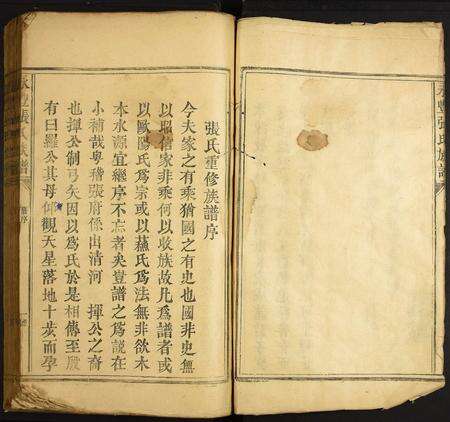 永豐張氏族譜
張氏重修族譜序
今夫家之有乘猶國之有史也國非史無
以昭信家非乘何以收族故凡爲譜者或
以歐陽氏爲宗或以蘇氏爲法無非欲木
本水源宜經序不忘者矣豈譜之爲說在
小補哉粵稽張府係出清河 揮公之裔
也揮公制弓矢因以爲氏於是相傳至殷
有曰羅公其母仰觀天星落地十步而孕
永豐張氏族譜
序
一